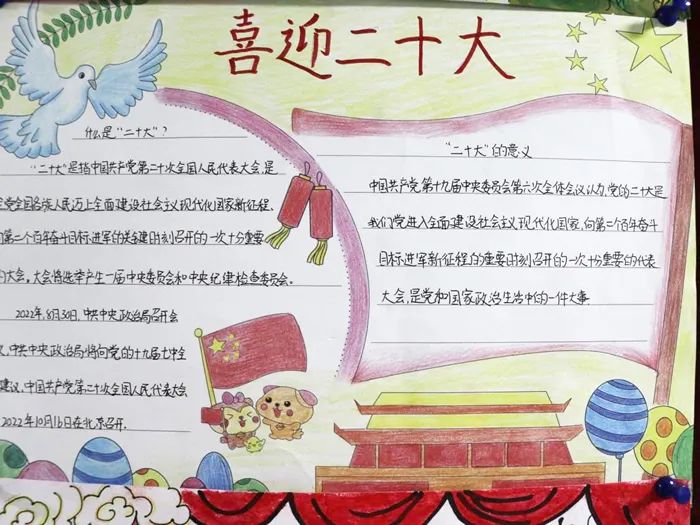 喜迎二十大
什么是“二十大”?
“二十大”是指中国共产党第二十次全国人民代表大会,是
党全国各族人民迈上全面建设社会主义现代化国家新征程、
向第二个百年奋斗目标进军的关键时刻召开的一次十分重要
的大会。大会将选举产生一届中央委员会和中央纪律检查委员会。
2022年8月30日,中共中央政治局召开会
议,中共中央政治局将向党的十九届七中全
建议,中国共产党第二十次全国人民代表大会
2022年10月16日在北京召开.
“二十大”的意义
中国共产党第十九届中央委员会第六次全体会议认为,党的二十大是
我们党进入全面建设社会主义现代化国家,向第二个百年奋斗
目标进军新征程的重要时刻召开的一次十分重要的代表
大会,是党和国家政治生活中的一件大事